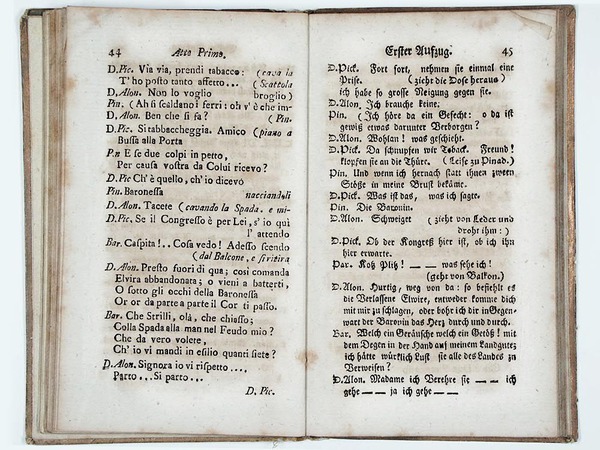 44 Atto Primo.
D.Pic. Via via, prendi tabacco: (cava la
T' ho posto tanto affetto... (Scattola
D. Alon. Non lo voglio broglio)
Pin. (Ah si scaldano i ferri: oh v' è che im-
D. Alon. Ben che si fa? (Pin.
D. Pic. Si tabbaccheggia. Amico (piano a
Bussa alla Porta
Pin E se due colpi in petto,
Per causa vostra da Colui ricevo?
D. Pic Ch' è quello, ch' io dicevo
Pin. Baronessa nacciandoli
D. Alon. Tacete (cavando la Spada. e mi-
D. Pic, Se il Congresso è per Lei, s' io qui
l' attendo
Bar. Caspita!.. Cosa vedo! Adesso scendo
(dal Balcone, e si ritira
D. Alon. Presto fuori di qua; così comanda
Elvira abbandonata; o vieni a batterti,
O sotto gli occhi della Baronessa
Or or da parte a parte il Cor ti passo.
Bar. Che Strilli, olà, che chiasso;
Colla Spada alla man nel Feudo mio?
Che da vero volere,
Ch' io vi mandi in esilio quanti siete?
D. Alon. Signora io vi rispetto ...,
Parto ... Si parto ...
D. Pic.
Erster Aufzug. 45
D. Pick. Fort fort, nehmen sie einmal eine
Prise. (zieht die Dose heraus)
ich habe so grosse Neigung gegen sie.
D. Alon. Ich brauche keine.
Pin. (Ich höre da ein Gefecht: o da ist
gewiß etwas darunter Verborgen?
D. Alon. Wohlan! was geschieht.
D. Pick. Da schnupfen wir Toback. Freund!
klopfen sie an die Thüre. (Leise zu Pinab.)
Pin. Und wenn ich hernach statt ihnen zween
Stöße in meine Brust bekäme.
D. Pick. Was ist das, was ich sagte.
Pin. Die Baronin.
D. Alon. Schweiget (zieht von Leder und
droht ihm:)
D. Pick. Ob der Kongreß hier ist, ob ich ihn
hier erwarte.
Bar. Kotz Plitz! — — was sehe ich!
(geht von Balkon.)
D. Alon. Hurtig, weg von da: so befiehlt es
die Verlassene Elwire, entweder komme dich
mit mir zu schlagen, oder bohr ich dir in Gegen-
wart der Baronin das Herz durch und durch.
Bar, Welch ein Geräusche welch ein Getöß! mit
dem Degen in der Hand auf meinem Landgute;
ich hätte würklich Lust sie alle des Landes zu
Verweisen?
D. Alon. Madame ich Verehre sie — — ich
gehe — — ja ich gehe — —